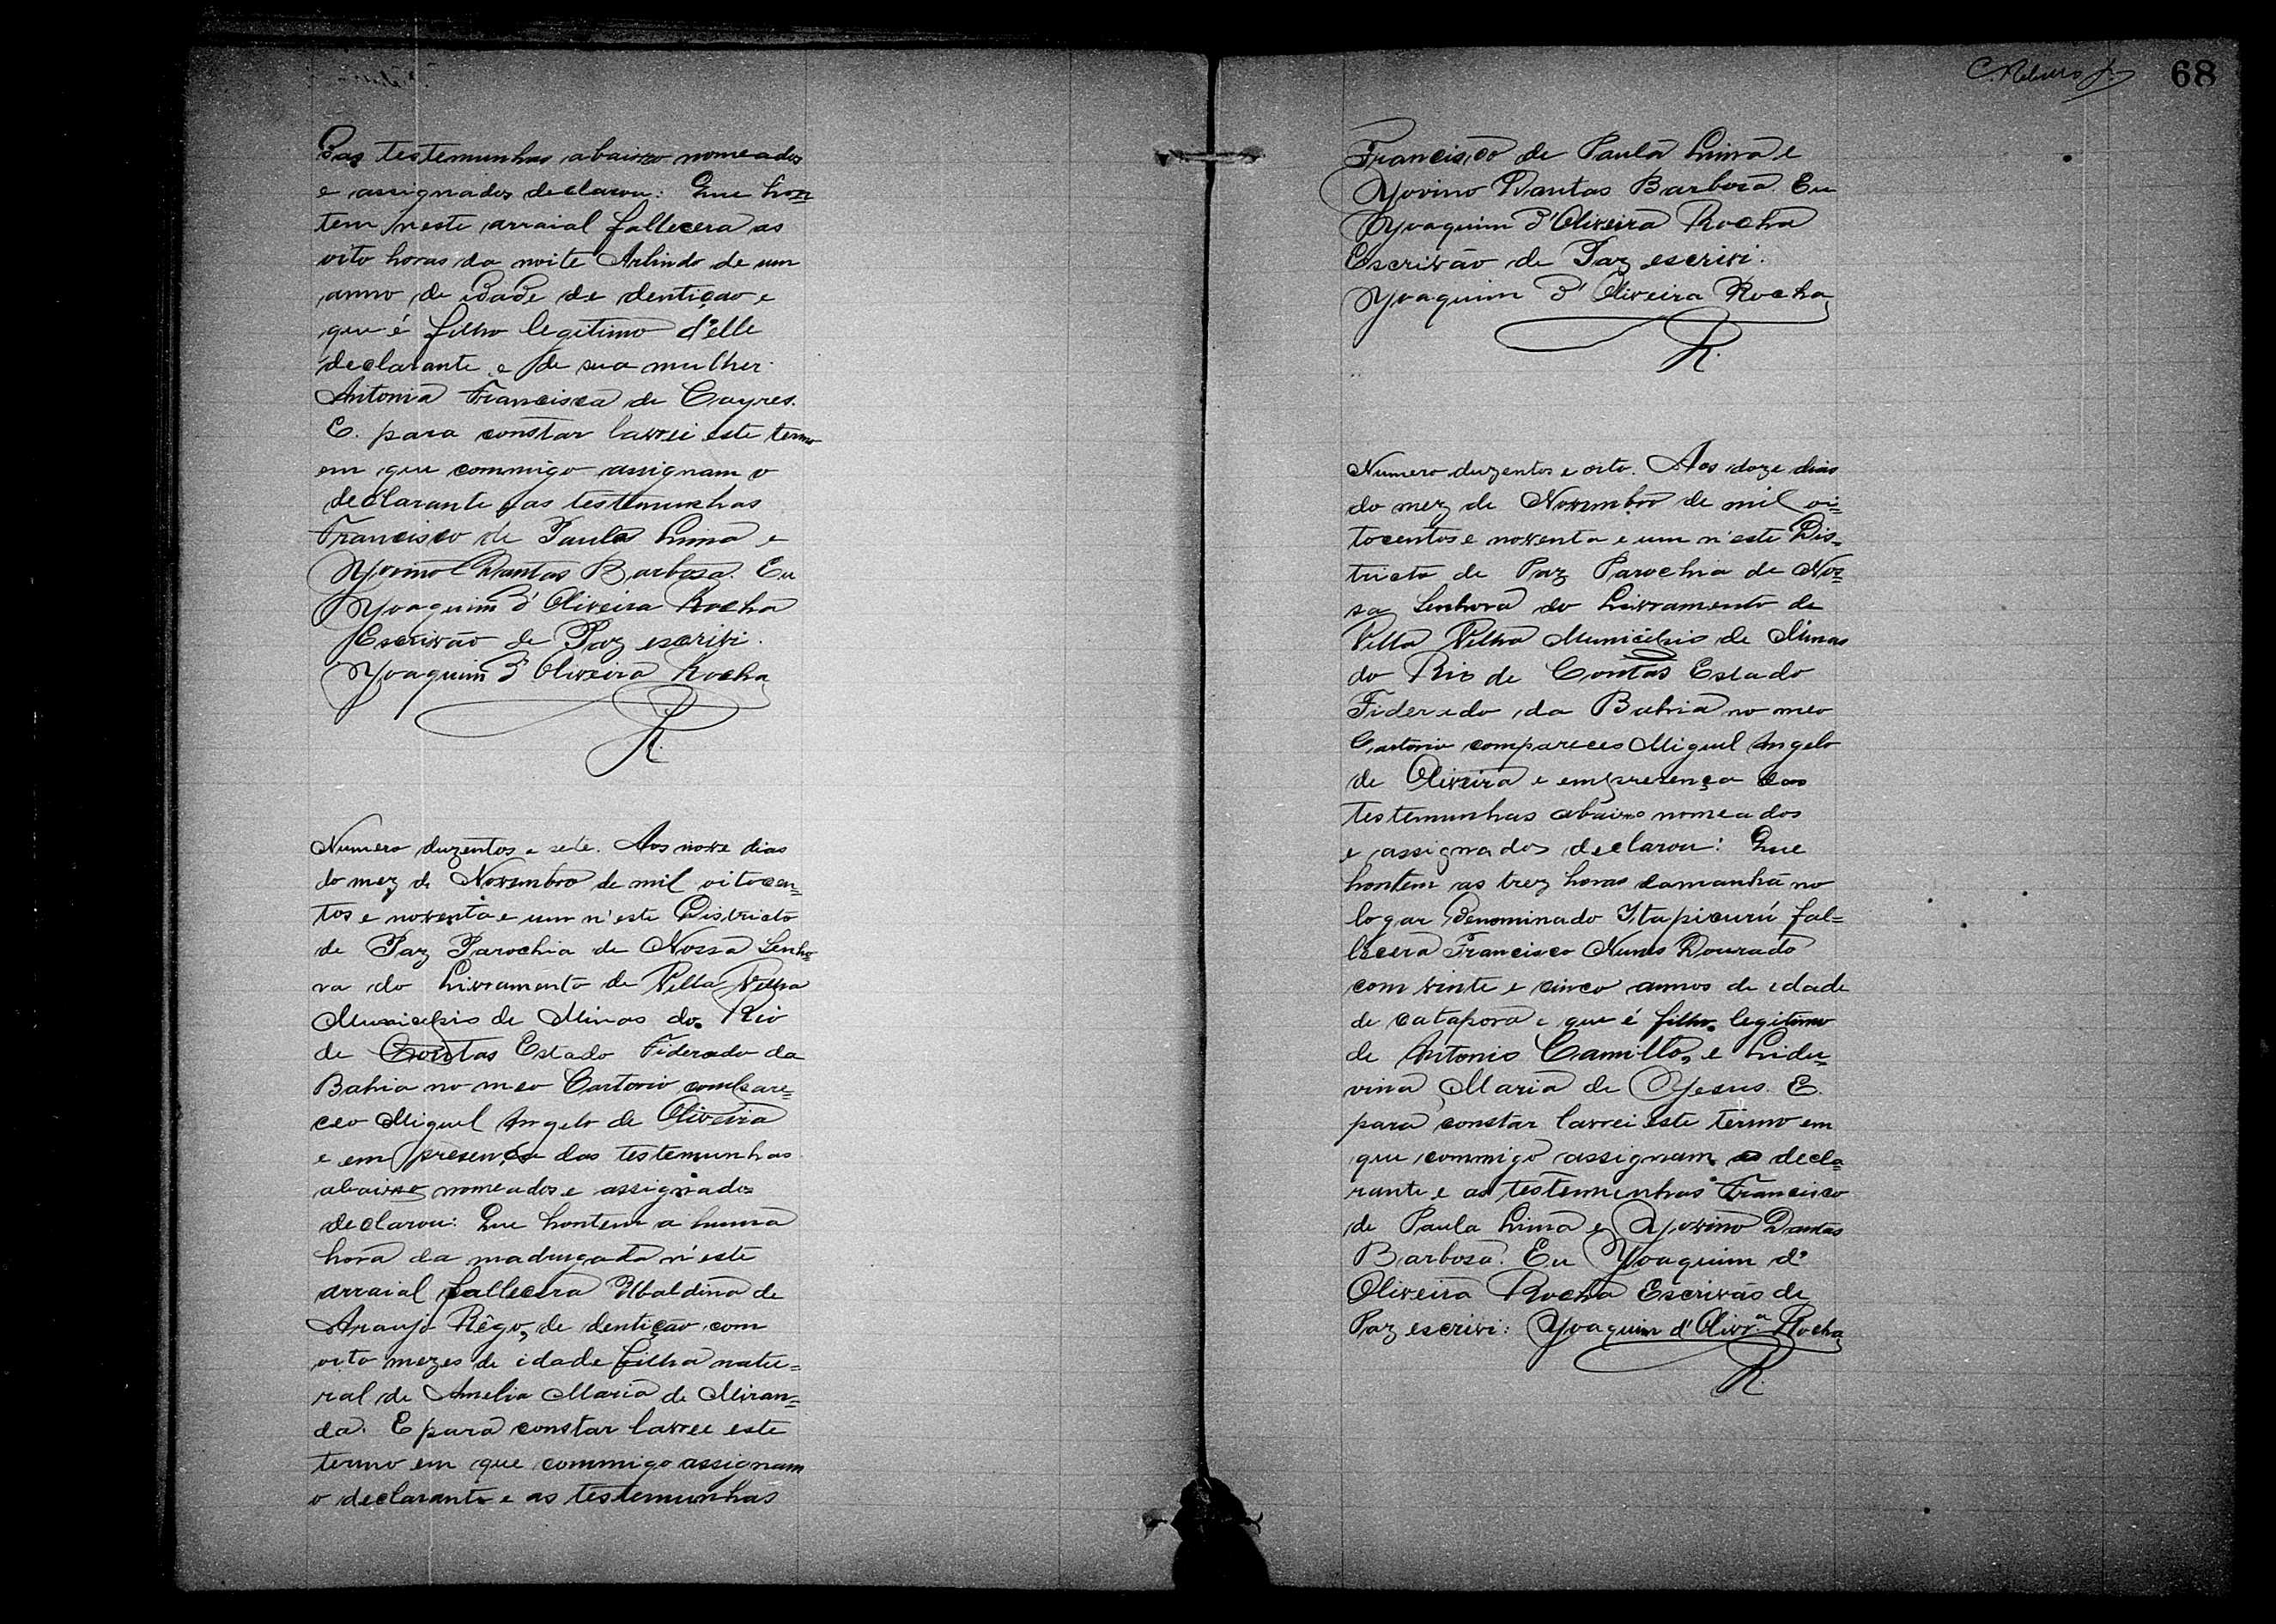 das testemunhas abaixo nomeados
e assignados declarou: Que hon=
tem neste arraial fallecera as
oito horas da noite Arlindo de um
anno de idade de dentiçao e
que é filho legitimo d'elle
declarante e de sua mulher
Antonia Francisca de Cayres.
E. para constar lavrei este termo
em que commigo assignam o
declarante e as testemunhas
Francisco de Paula Lima e
Yovino Dantas Barbosa. Eu
Yoaquim d'Oliveira Rocha
Escrivão de Paz escrivi.
Yoaquim d'Oliveira Rocha
R.
Numero duzentos e sete. Aos nove dias
do mez de Novembro de mil oitocen=
tos e noventa e um n'este Districto
de Paz Parochia de Nossa Senho=
ra do Livramento de Villa Velha
Municipio de Minas do Rio
de Contas Estado Fiderado da
Bahia no meo Cartorio compare=
ceo Miguel Angelo de Oliveira
e em presença das testemunhas
abaixo nomeados e assignados
declarou: Que hontem a huma
hora da madrugada n'este
arraial fallecera Ubaldina de
Araujo Rêgo, de dentição com
oito mezes de idade filha natu=
ral de Amelia Maria de Miran=
da. E para constar lavrei este
termo em que commigo assignam
o declarante e as testemunhas
68
Francisco de Paula Lima e
Yovino Dantas Barbosa. Eu
Yoaquim d'Oliveira Rocha
Escrivão de Paz escrivi.
Yoaquim d'Oliveira Rocha
R.
Numero duzentos e oito. Aos doze dias
do mez de Novembro de mil oi=
tocentos e noventa e um n'este Dis=
tricto de Paz Parochia de Nos=
sa Senhora do Livramento de
Villa Velha Municipio de Minas
do Rio de Contas Estado
Fiderado da Bahia no meo
Cartorio compareceo Miguel Angelo
de Oliveira e em presença das
testemunhas abaixo nomeados
e assignados declarou: Que
hontem as trez horas da manhã no
logar denominado Itapicurú fal=
lecera Francisco Nunes Dourado
com vinte e cinco annos de idade
de catapora e que é filho legitimo
de Antonio Camillo, e Lidu=
vina Maria de Yesus. E.
para constar lavrei este termo em
que commigo assignam o decla=
rante e as testemunhas Francisco
de Paula Lima e Yovino Dantas
Barbosa. Eu Yoaquim d'
Oliveira Rocha Escrivão de
Paz escrivi: Yoaquim d'Olivr.ª Rocha
R.